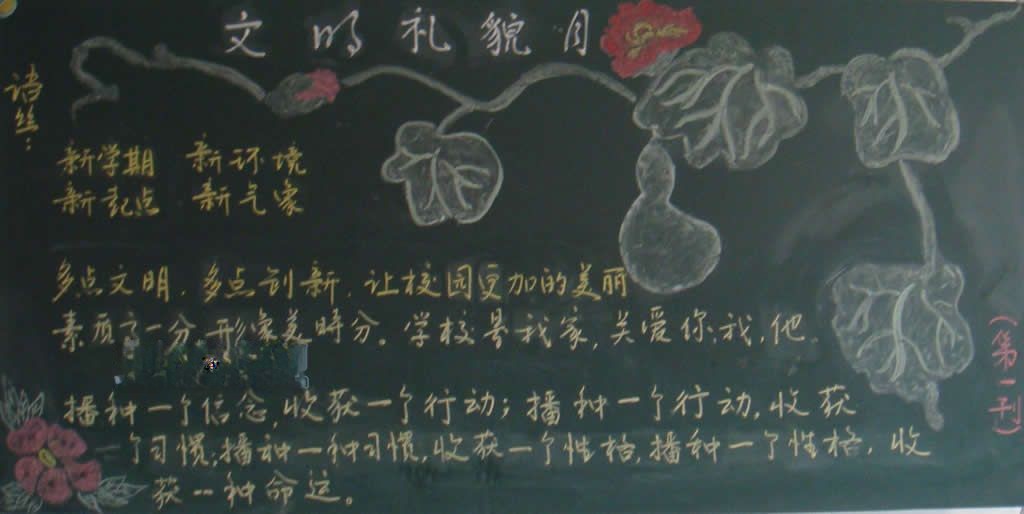 文明礼貌月
诗丝：
新学期 新环境
新起点 新气象
多点文明，多点创新，让校园更加的美丽
素质高一分，形象美时分。学校是我家，关爱你，我，他。
播种一个信念，收获一个行动；播种一个行动，收获
一个习惯；播种一种习惯，收获一个性格，播种一个性格，收
获一种命运。
（第一刊）